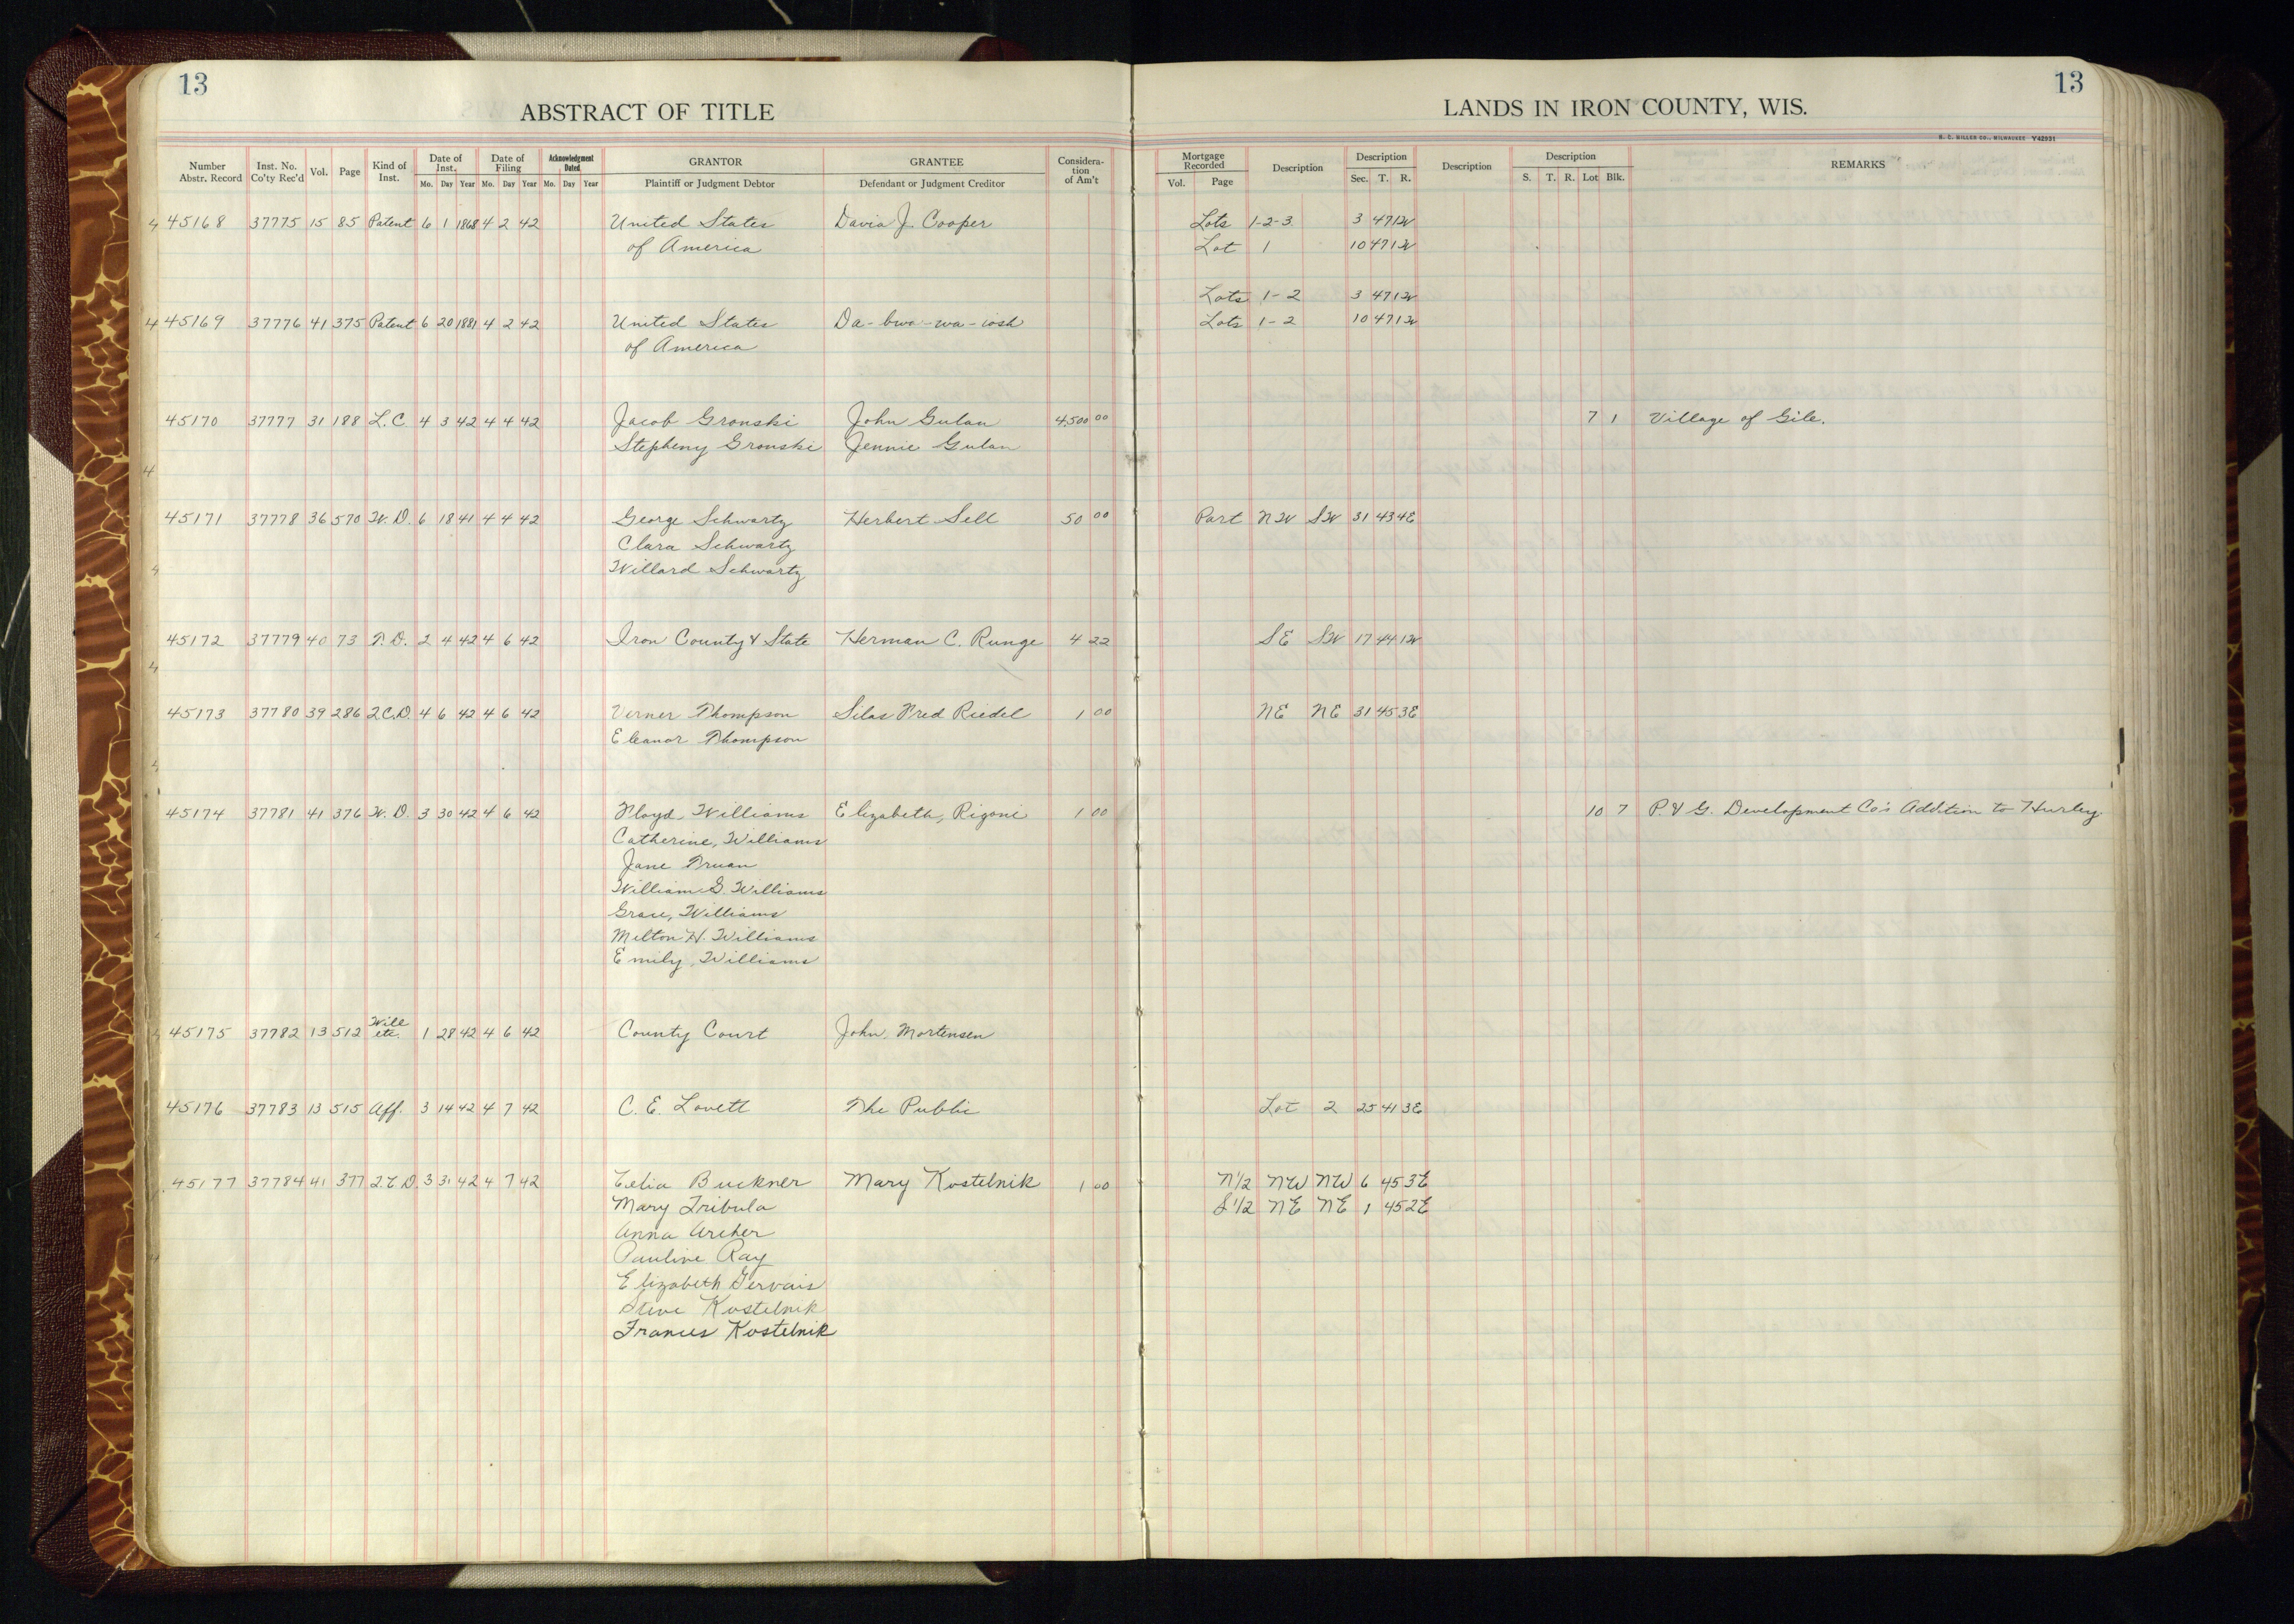 13
13
ABSTRACT OF TITLE
LANDS IN IRON COUNTY, WIS.
H. C. MILLER CO., MILWAUKEE Y42931
Number Abstr. Record Inst. No. Co'ty Rec'd Vol. Page Kind of Inst. Date of Inst. Mo. Day Year Date of Filing Mo. Day Year Acknowledgment Dated Mo. Day Year GRANTOR Plaintiff or Judgment Debtor GRANTEE Defendant or Judgment Creditor Considera- tion of Am't Mortgage Recorded Vol. Page Description Description Sec. T. R. Description Description S. T. R. Lot Blk. REMARKS
4 45168 37775 15 85 Patent 6 1 1868 4 2 42 United States David J. Cooper Lots 1-2-3 3 47 1W
of America Lot 1 10 47 1W
Lots 1-2 3 47 1W
4 45169 37776 41 375 Patent 6 20 1881 4 2 42 United States Da-bwa-wa-iash Lots 1-2 10 47 1W
of America
45170 37777 31 188 L.C 4 3 42 4 4 42 Jacob Gronski John Gulan 4,500 00 7 1 Village of Gile.
Stepheny Gronski Jennie Gulan
4
45171 37778 36 570 W.D. 6 18 41 4 4 42 George Schwartz Herbert Sell 50 00 Part NW SW 31 43 4E
Clara Schwartz
4 Willard Schwartz
45172 37779 40 73 T.D. 2 4 42 4 6 42 Iron County & State Herman C. Runge 4 22 SE SW 17 44 1W
4
45173 37780 39 286 2.C.D. 4 6 42 4 6 42 Verner Thompson Silas Fred Riedel 1 00 NE NE 31 45 3E
Eleanor Thompson
4
45174 37781 41 376 W.D. 3 30 42 4 6 42 Floyd, Williams Elizabeth, Rigoni 1 00 10 7 P. & G. Development Co's Addition to Hurley.
Catherine, Williams
Jane Truan
William G. Williams
Grace, Williams
Milton H. Williams
Emily, Williams
4 45175 37782 13 512 Will etc. 1 28 42 4 6 42 County Court John, Mortensen
45176 37783 13 515 Aff. 3 14 42 4 7 42 C. E. Lovett The Public Lot 2 25 41 3E
45177 37784 41 377 2.C D. 3 31 42 4 7 42 Celia Buckner Mary Kostelnik 1 00 N1/2 NW NW 6 45 3E
Mary Tribula S1/2 NE NE 1 45 2E
Anna Archer
Pauline Ray
Elizabeth Gervais
Steve Kostelnik
Frances Kostelnik